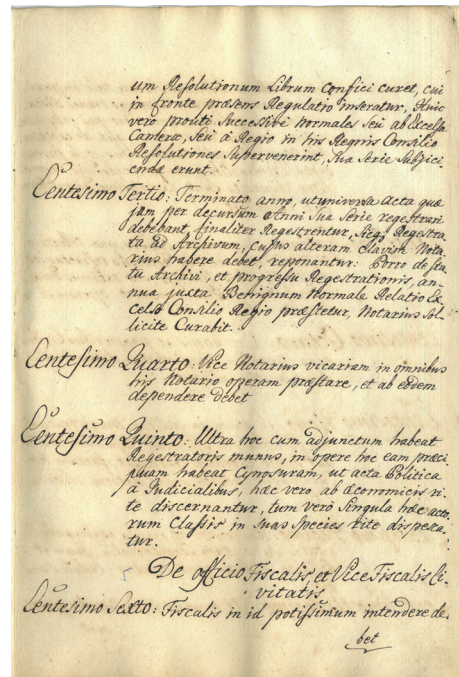 um Resolutionum Librum confici curet, cui
in fronte præsens Regulatio inseratur, Huic
vero prouti successivè Normales seu ab Excelsa
Camera, seu à Regio in his Regnis Consilio
Resolutiones supervenerint, sua serie subjici
endæ erunt.
Centesimo Tertio: Terminato anno, ut universa acta quæ
jam per decursum Anni sua serie regestrari
debebant, finaliter Regestrentur, sicq. Regestra
ta ad Archivum, cujus alteram clavim Nota
rius habere debet, reponantur: Porro de sta
tu Archivi, et progressu Regestrationis, an
nua juxta Benignum Normale Relatio Ex
celso Consilio Regio præstetur, Notarius sol
licite Curabit.
Centesimo Quarto: Vice Notarius vicariam in omnibus
his Notario operam præstare, et ab eodem
dependere debet
Centesimo Quinto: Ultra hoc cum adjunctum habeat
Regestratoris munus, in opere hoc eam præci
puam habeat Cynosuram, ut acta Politica
à Judicialibus, hæc vero ab œconomicis ri
te discernantur, tum verò singula hæc acto
rum Classis in suas species rite dispesca
tur.
De officio Fiscalis et Vice Fiscalis Ci
vitatis
Centesimo Sexto: Fiscalis in id potissimum intendere de
bet